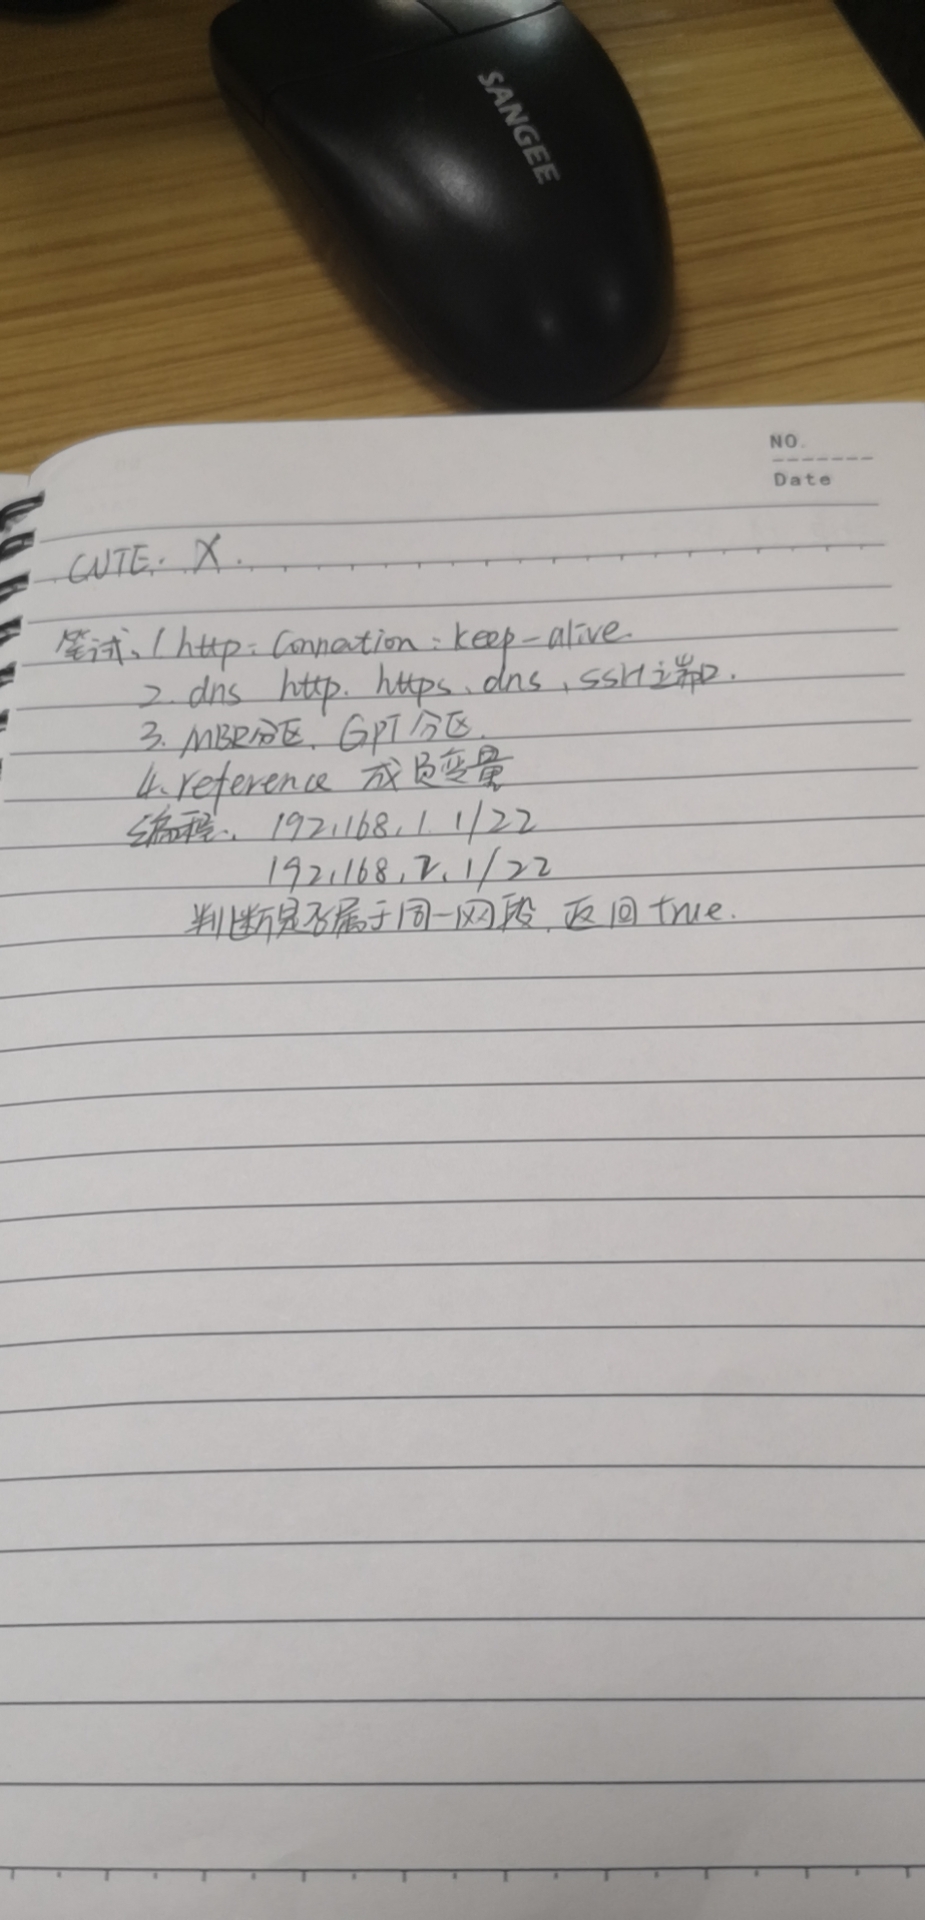 SANGEE
NO.
Date
CUTE. X.
笔试、1 http: Connection: keep-alive.
2. dns http. https、dns、SSH 端口.
3. MBR分区、GPT分区.
4. reference 成员变量
编程、192.168.1.1/22
192.168.2.1/22
判断是否属于同一网段、返回true.